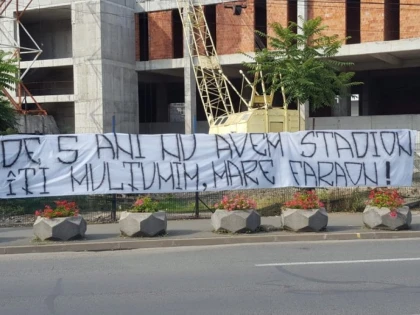 DE 5 ANI NU AVEM STADION
ÎȚI MULȚUMIM, MARE FARAON!